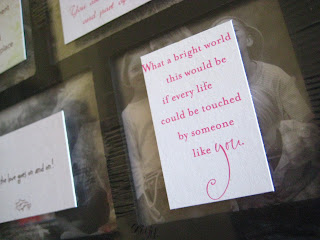 What a bright world
this would be
if every life
could be touched
by someone
like you.
the love goes on and on!